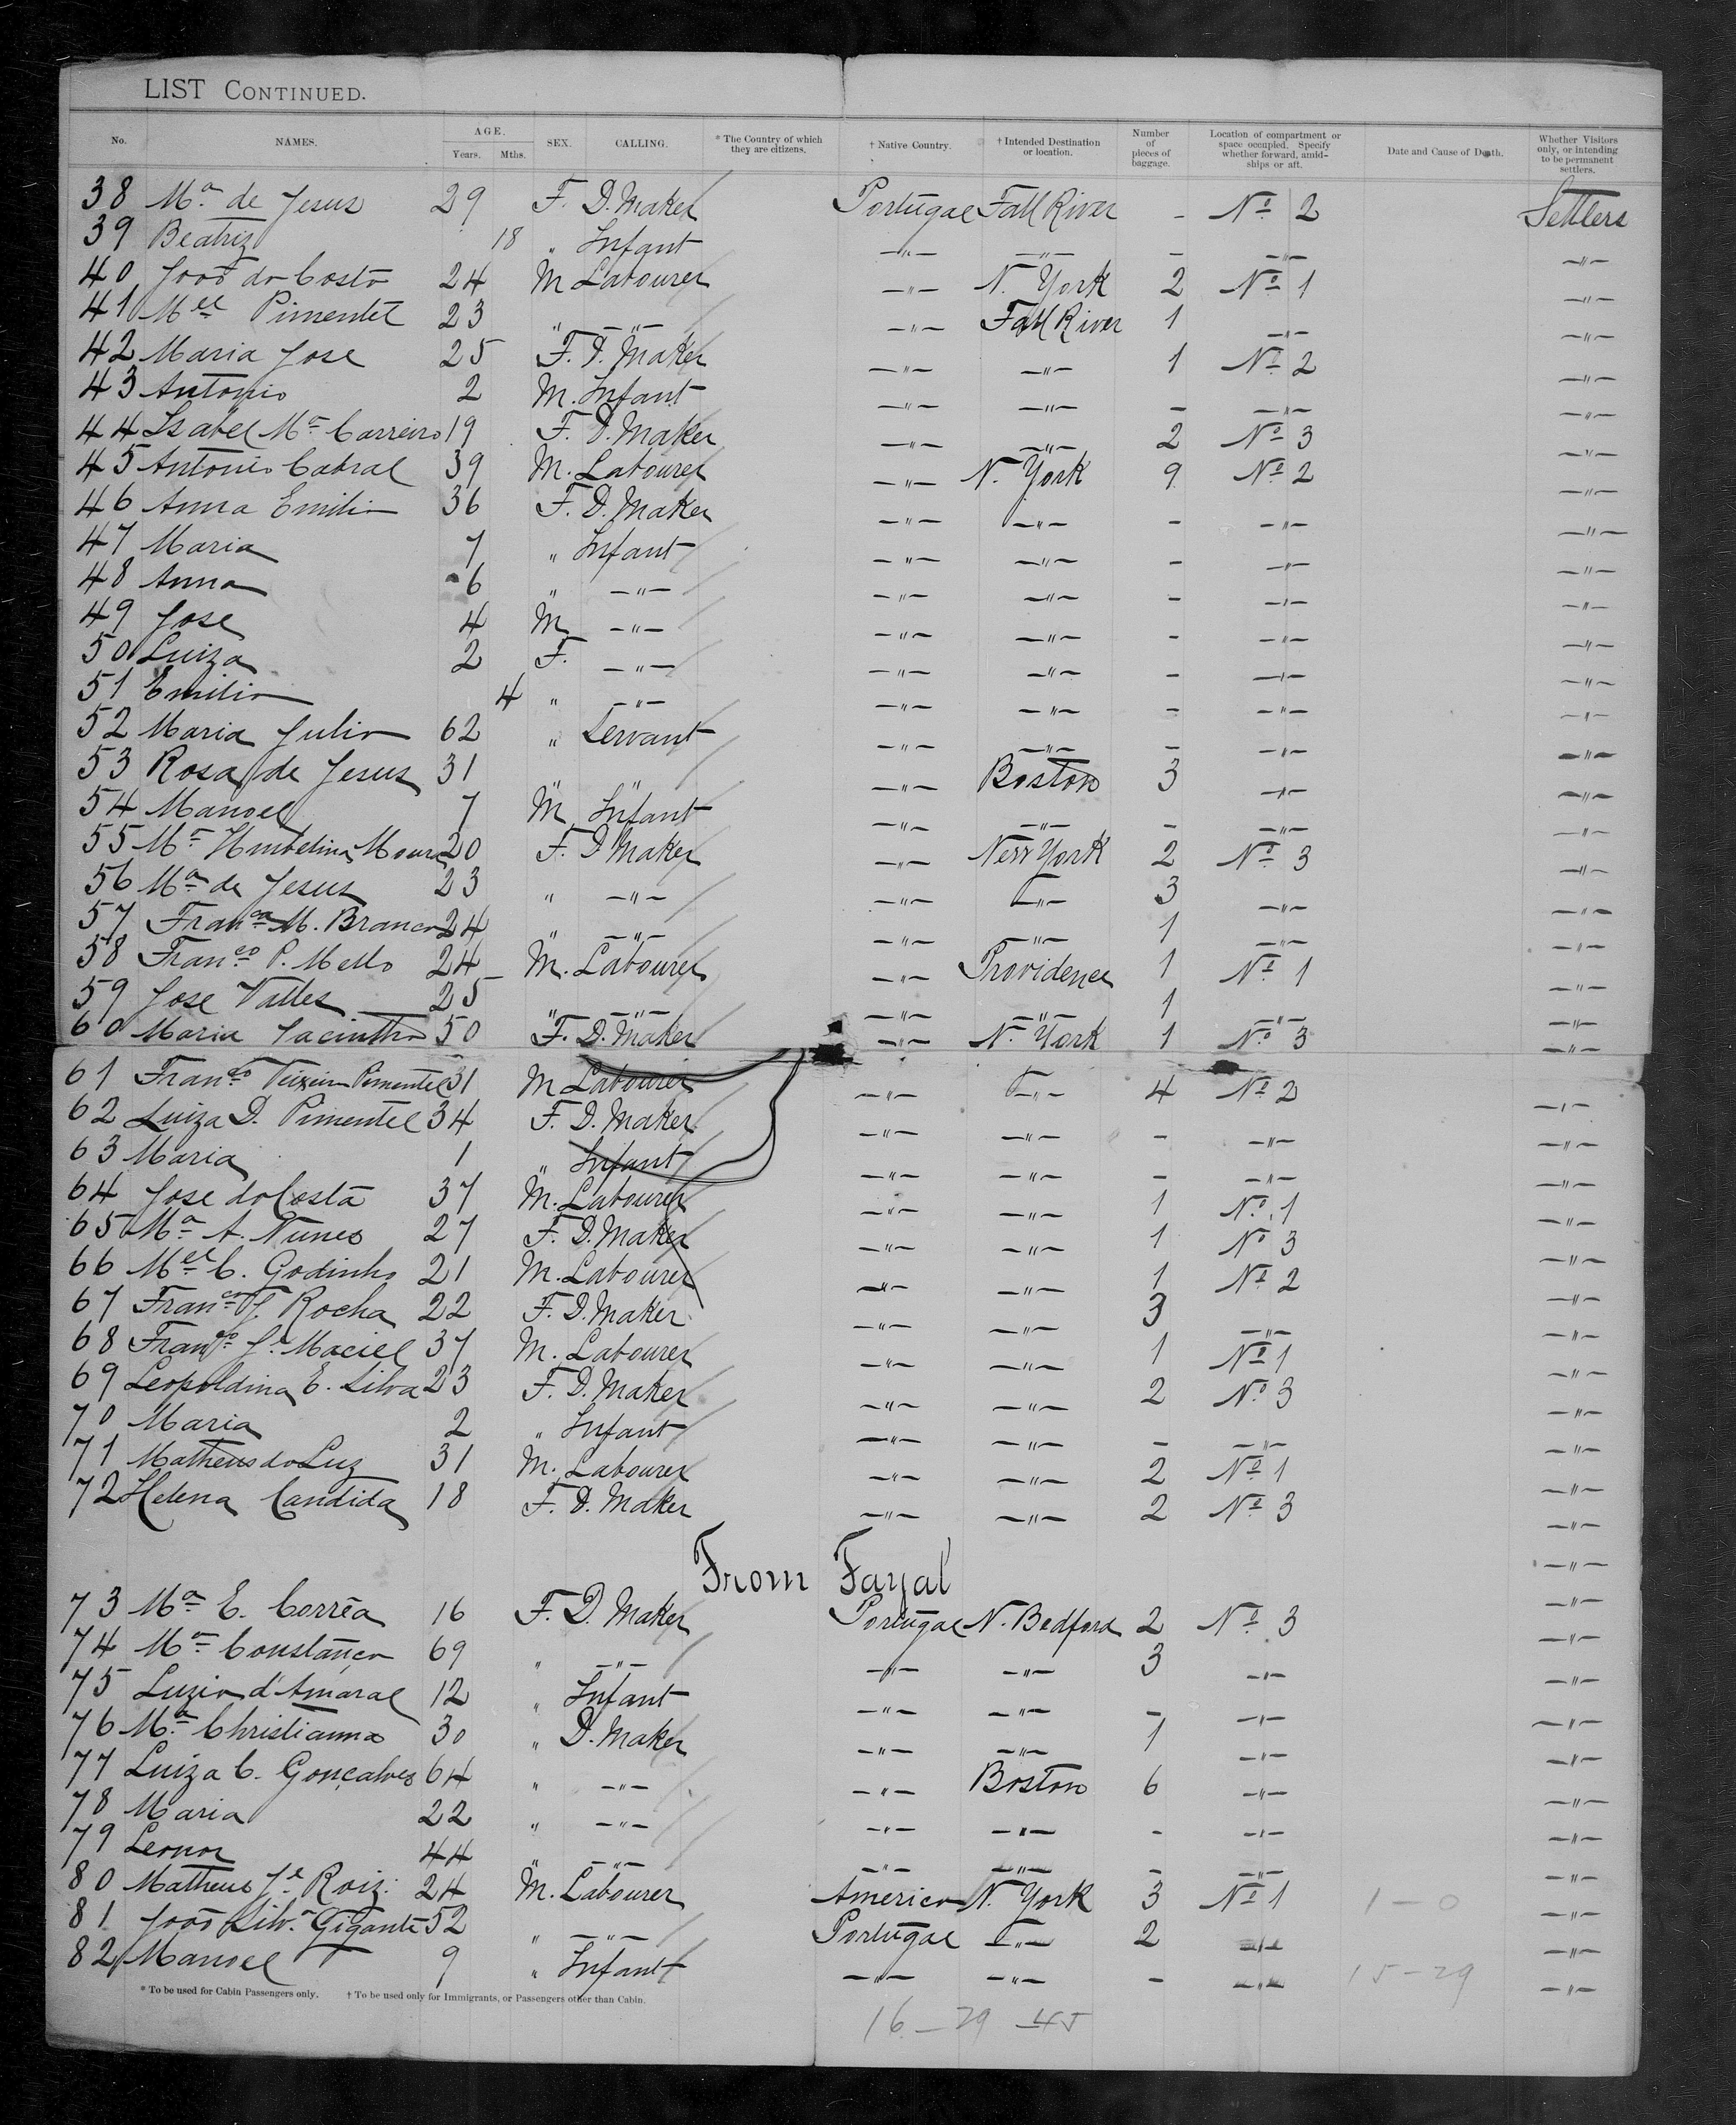 LIST CONTINUED.
No. NAMES. AGE. Years. Mths. SEX. CALLING. * The Country of which they are citizens. † Native Country. † Intended Destination or location. Number of pieces of baggage. Location of compartment or space occupied. Specify whether forward, amidships or aft. Date and Cause of Death. Whether Visitors only, or intending to be permanent settlers.
38 Mª de Jesus 29 F. D. Maker Portugal Fall River - Nº 2 Settlers
39 Beatriz 18 " Infant —"— —"— - —"— —"—
40 João da Costa 24 M Labourer —"— N. York 2 Nº 1 —"—
41 Mel Pimentel 23 " —"— —"— Fall River 1 —"— —"—
42 Maria Jose 25 F. D. Maker —"— —"— 1 Nº 2 —"—
43 Antonio 2 M. Infant —"— —"— - —"— —"—
44 Isabel Mª Carreiro 19 F. D. Maker —"— —"— 2 Nº 3 —"—
45 Antonio Cabral 39 M. Labourer —"— N. York 9 Nº 2 —"—
46 Anna Emilia 36 F. D. Maker —"— —"— - —"— —"—
47 Maria 7 " Infant —"— —"— - —"— —"—
48 Anna 6 " —"— —"— —"— - —"— —"—
49 Jose 4 M —"— —"— —"— - —"— —"—
50 Luiza 2 F. —"— —"— —"— - —"— —"—
51 Emilia 4 " —"— —"— —"— - —"— —"—
52 Maria Julia 62 " Servant —"— —"— - —"— —"—
53 Rosa de Jesus 31 " " —"— Boston 3 —"— —"—
54 Manoel 7 M Infant —"— —"— - —"— —"—
55 Mª Humbelina Moura 20 F. D Maker —"— New York 2 Nº 3 —"—
56 Mª de Jesus 23 " —"— —"— —"— 3 —"— —"—
57 Franca M. Branco 24 " —"— —"— —"— 1 —"— —"—
58 Franco P. Mello 24 M. Labourer —"— Providence 1 Nº 1 —"—
59 Jose Valles 25 " —"— —"— —"— 1 —"— —"—
60 Maria Jacintha 50 F. D. Maker —"— N. York 1 Nº 3 —"—
61 Franco Teixeira Pimentel 31 M Labourer —"— —"— 4 Nº 2 —"—
62 Luiza D. Pimentel 34 F. D. Maker —"— —"— - —"— —"—
63 Maria 1 " Infant —"— —"— - —"— —"—
64 Jose da Costa 37 M. Labourer —"— —"— 1 Nº 1 —"—
65 Mª A. Nunes 27 F. D. Maker —"— —"— 1 Nº 3 —"—
66 Mel C. Godinho 21 M. Labourer —"— —"— 1 Nº 2 —"—
67 Franca J. Rocha 22 F. D. Maker —"— —"— 3 —"— —"—
68 Franco Je Maciel 37 M. Labourer —"— —"— 1 Nº 1 —"—
69 Leopoldina E. Silva 23 F. D. Maker —"— —"— 2 Nº 3 —"—
70 Maria 2 " Infant —"— —"— - —"— —"—
71 Matheus da Luz 31 M. Labourer —"— —"— 2 Nº 1 —"—
72 Helena Candida 18 F. D. Maker —"— —"— 2 Nº 3 —"—
From Fayal —"—
73 Mª E. Corrêa 16 F. D. Maker Portugal N. Bedford 2 Nº 3 —"—
74 Mª Constança 69 " —"— —"— —"— 3 —"— —"—
75 Luzia d'Amaral 12 " Infant —"— —"— - —"— —"—
76 Mª Christianna 30 " D. Maker —"— —"— 1 —"— —"—
77 Luiza C. Gonçalves 64 " —"— —"— Boston 6 —"— —"—
78 Maria 22 " —"— —"— —"— - —"— —"—
79 Leonor 44 " —"— —"— —"— - —"— —"—
80 Matheus Je Roiz. 24 M. Labourer America N. York 3 Nº 1 1-0 —"—
81 João Silvª Gigante 52 " —"— Portugal —"— 2 —"— —"—
82 Manoel 9 " Infant —"— —"— - —"— 15-29 —"—
* To be used for Cabin Passengers only. † To be used only for Immigrants, or Passengers other than Cabin.
16-29 45